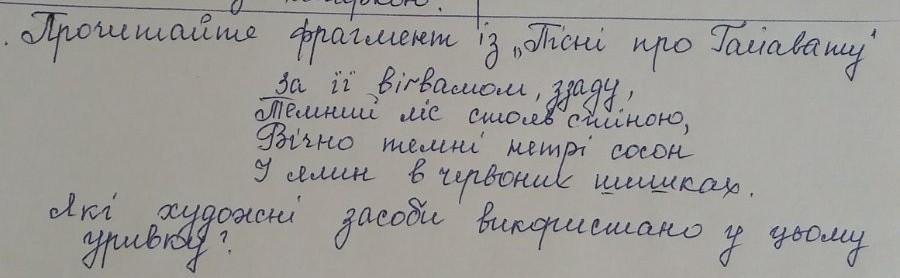 . Прочитайте фрагмент із „Пісні про Гайавату"
За її вігвамом, ззаду,
Темний ліс стояв стіною,
Вічно темні нетрі сосон
І ялин в червоних шишках.
Які художні засоби використано у цьому
уривку?